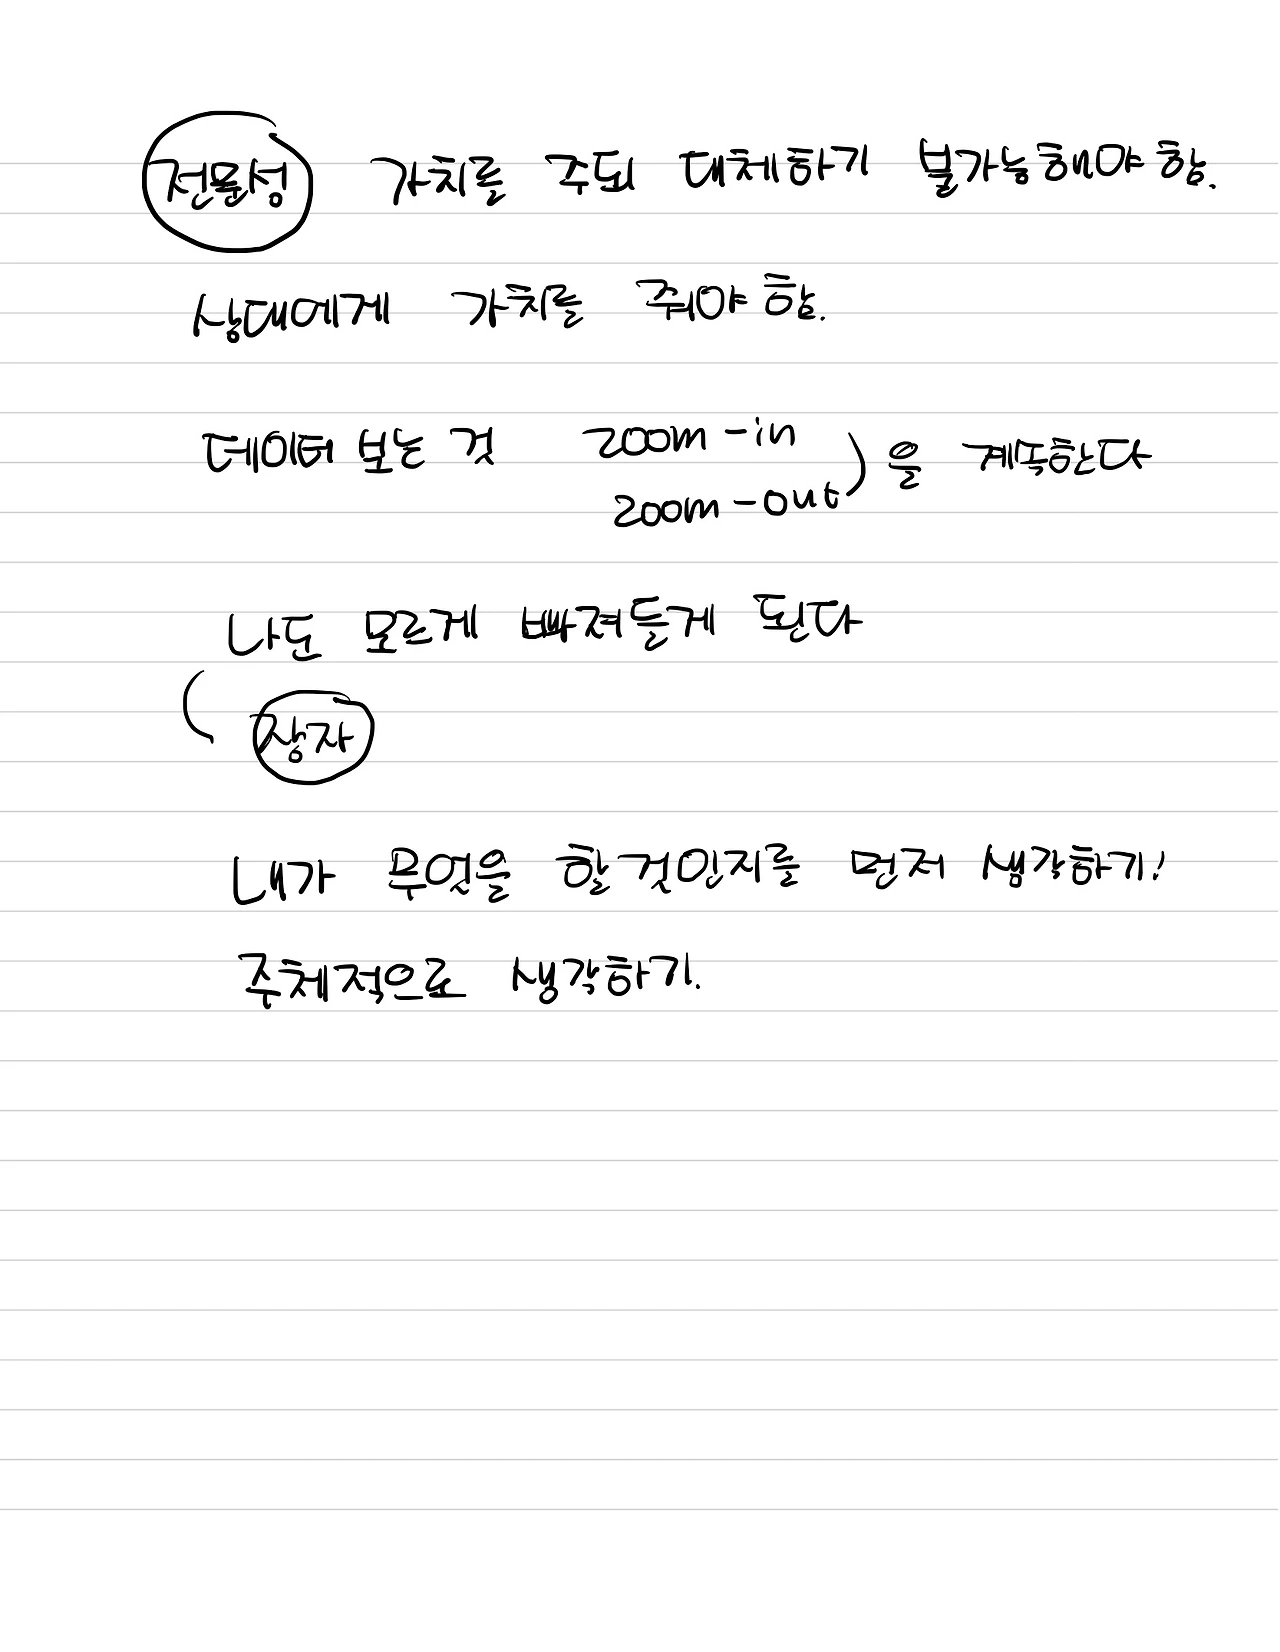 전문성 가치를 주되 대체하기 불가능해야 함.
상대에게 가치를 줘야 함.
데이터 보는 것 zoom-in
zoom-out ) 을 계속한다
나도 모르게 빠져들게 된다
( 상자
내가 무엇을 할 것인지를 먼저 생각하기!
주체적으로 생각하기.